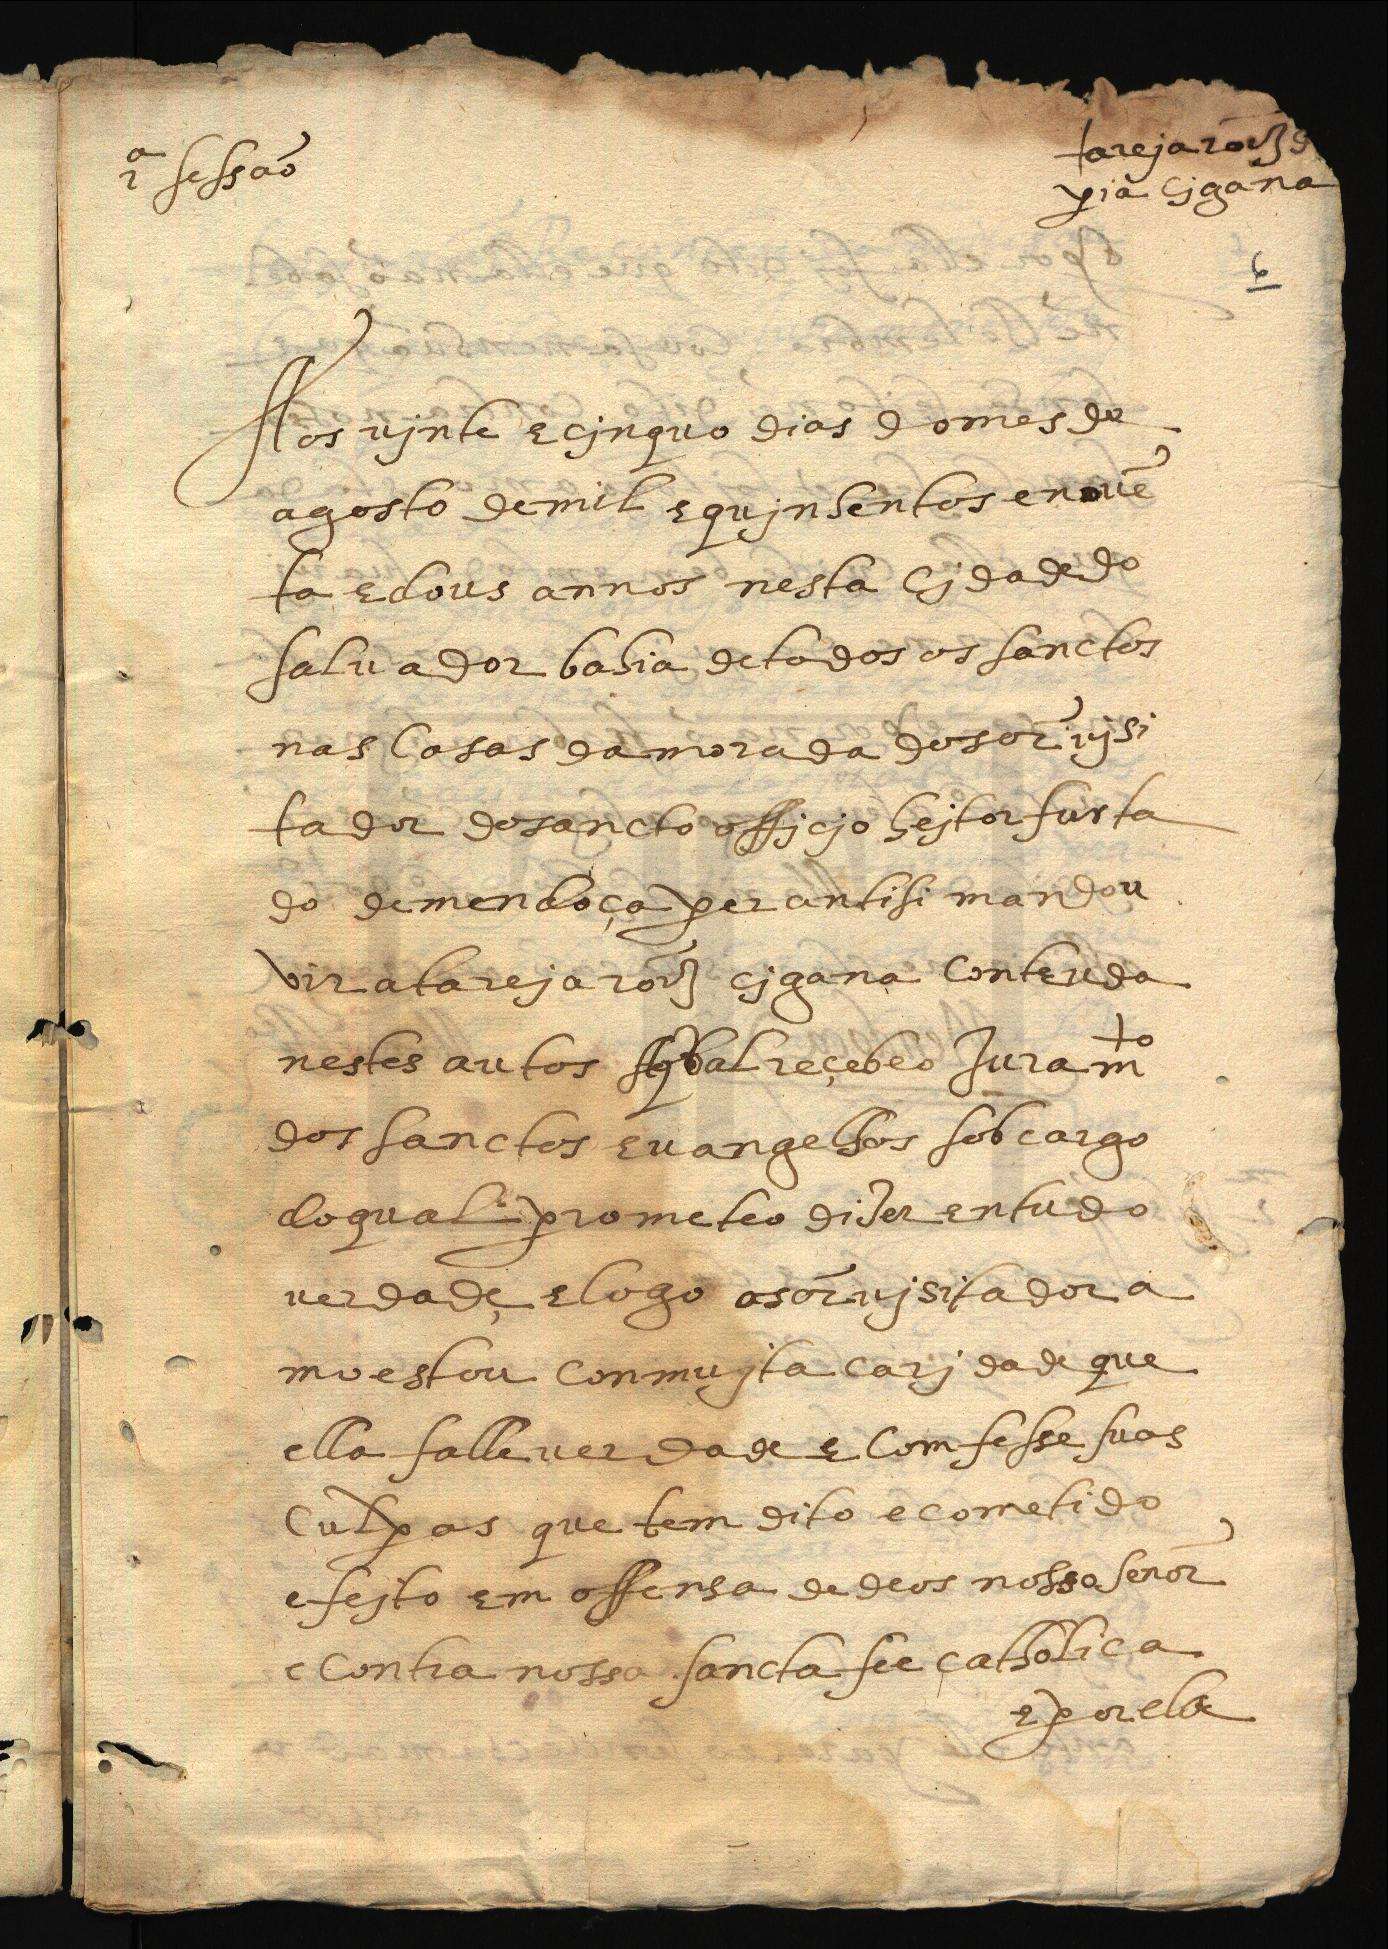 1ª sessaõ
tareja roĩz
xpiã cjgana
6
Aos vjnte e cjnquo dias do mes de
agosto de mil e qujnhentos e nouẽ
ta e dous annos nesta cjdade do
saluador bahia de todos os sanctos
nas Casas da morada do sõr vjsi
tador do sancto officjo hejtor furta
do de mendoça perante si mandou
vir a tareja roĩz cjgana Conteuda
nestes autos a qual reçebeo Juramto
dos sanctos euangelhos sob cargo
do qual prometeo dizer en tudo
uerdade e logo o sõr vjsitador a
moestou Con mujta carjdade que
ella falle uerdade e Comfesse suas
Culpas que tem dito e cometido
e fejto em offensa de deos nosso señor
e Contra nossa sancta fee catholica
e por ella